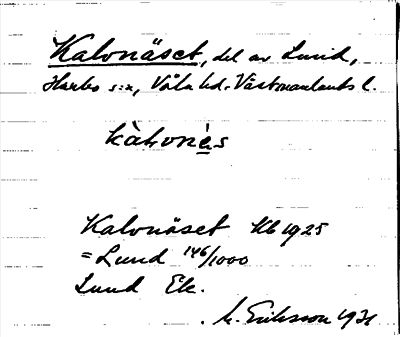 Kalvnäset, del av Lund,
Harbo s:n, Våla hd. Västmanlands l.
kàlvnè̱s
Kalvnäset Kb 1925
= Lund 146/1000
Lund Ek.
M. Eriksson 1931